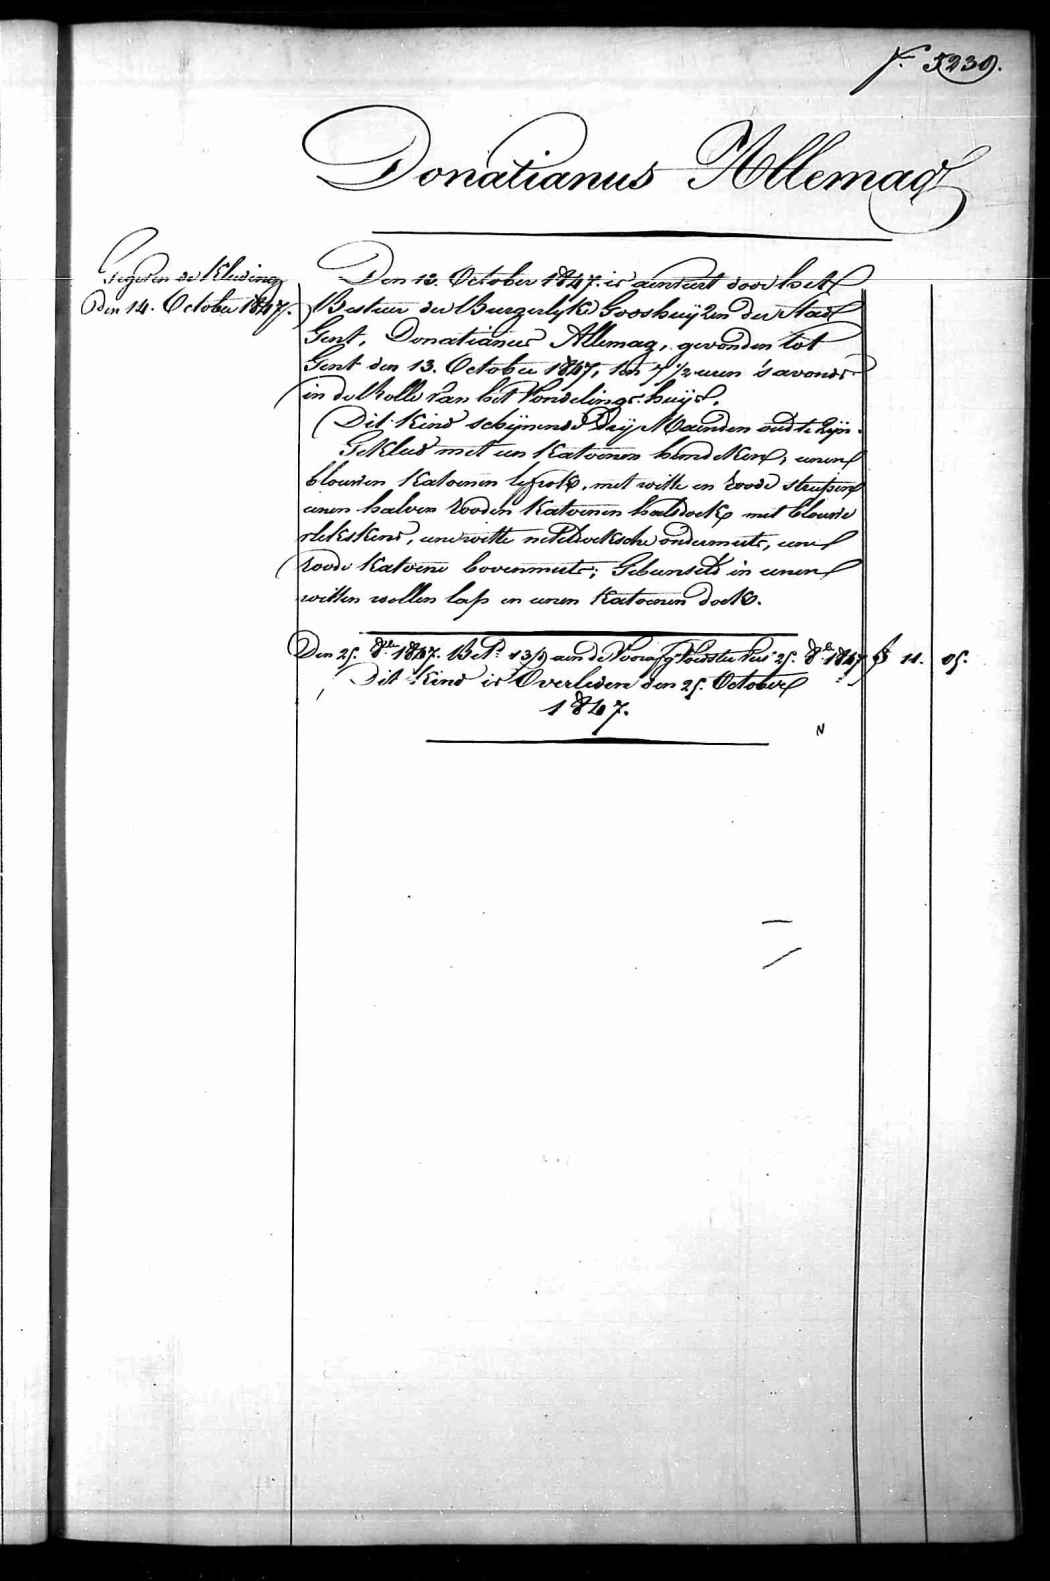 f.° 5239.
Donatianus Allemag
Gegeven de Kleding
den 14. October 1847.
Den 13. October 1847. is aenveert door het
Bestuer der Burgerlyke Godshuyzen der Stad
Gent, Donatianus Allemag, gevonden tot
Gent den 13. October 1847, ten 7 1/2 uren 's avonds
in de Rolle van het Vondelings-huys.
Dit Kind schynende dry Maenden oud te zyn.
Gekleed met een Katoenen hemdeken, eenen
blouwen Katoenen lyfrok, met witte en roode streepen
eenen halven rooden Katoenen halsdoek met blouwe
vlekskens, eene witte neteldoeksche ondermuts, eene
roode Katoene bovenmuts; Gebunseld in eenen
witten wollen lap en eenen Katoenen doek.
Den 25. 8bre 1847. Bet. 13 aen de Voedster tot 25. 8bre 1847 11. 05.
Dit Kind is Overleden den 25. October
1847.
N